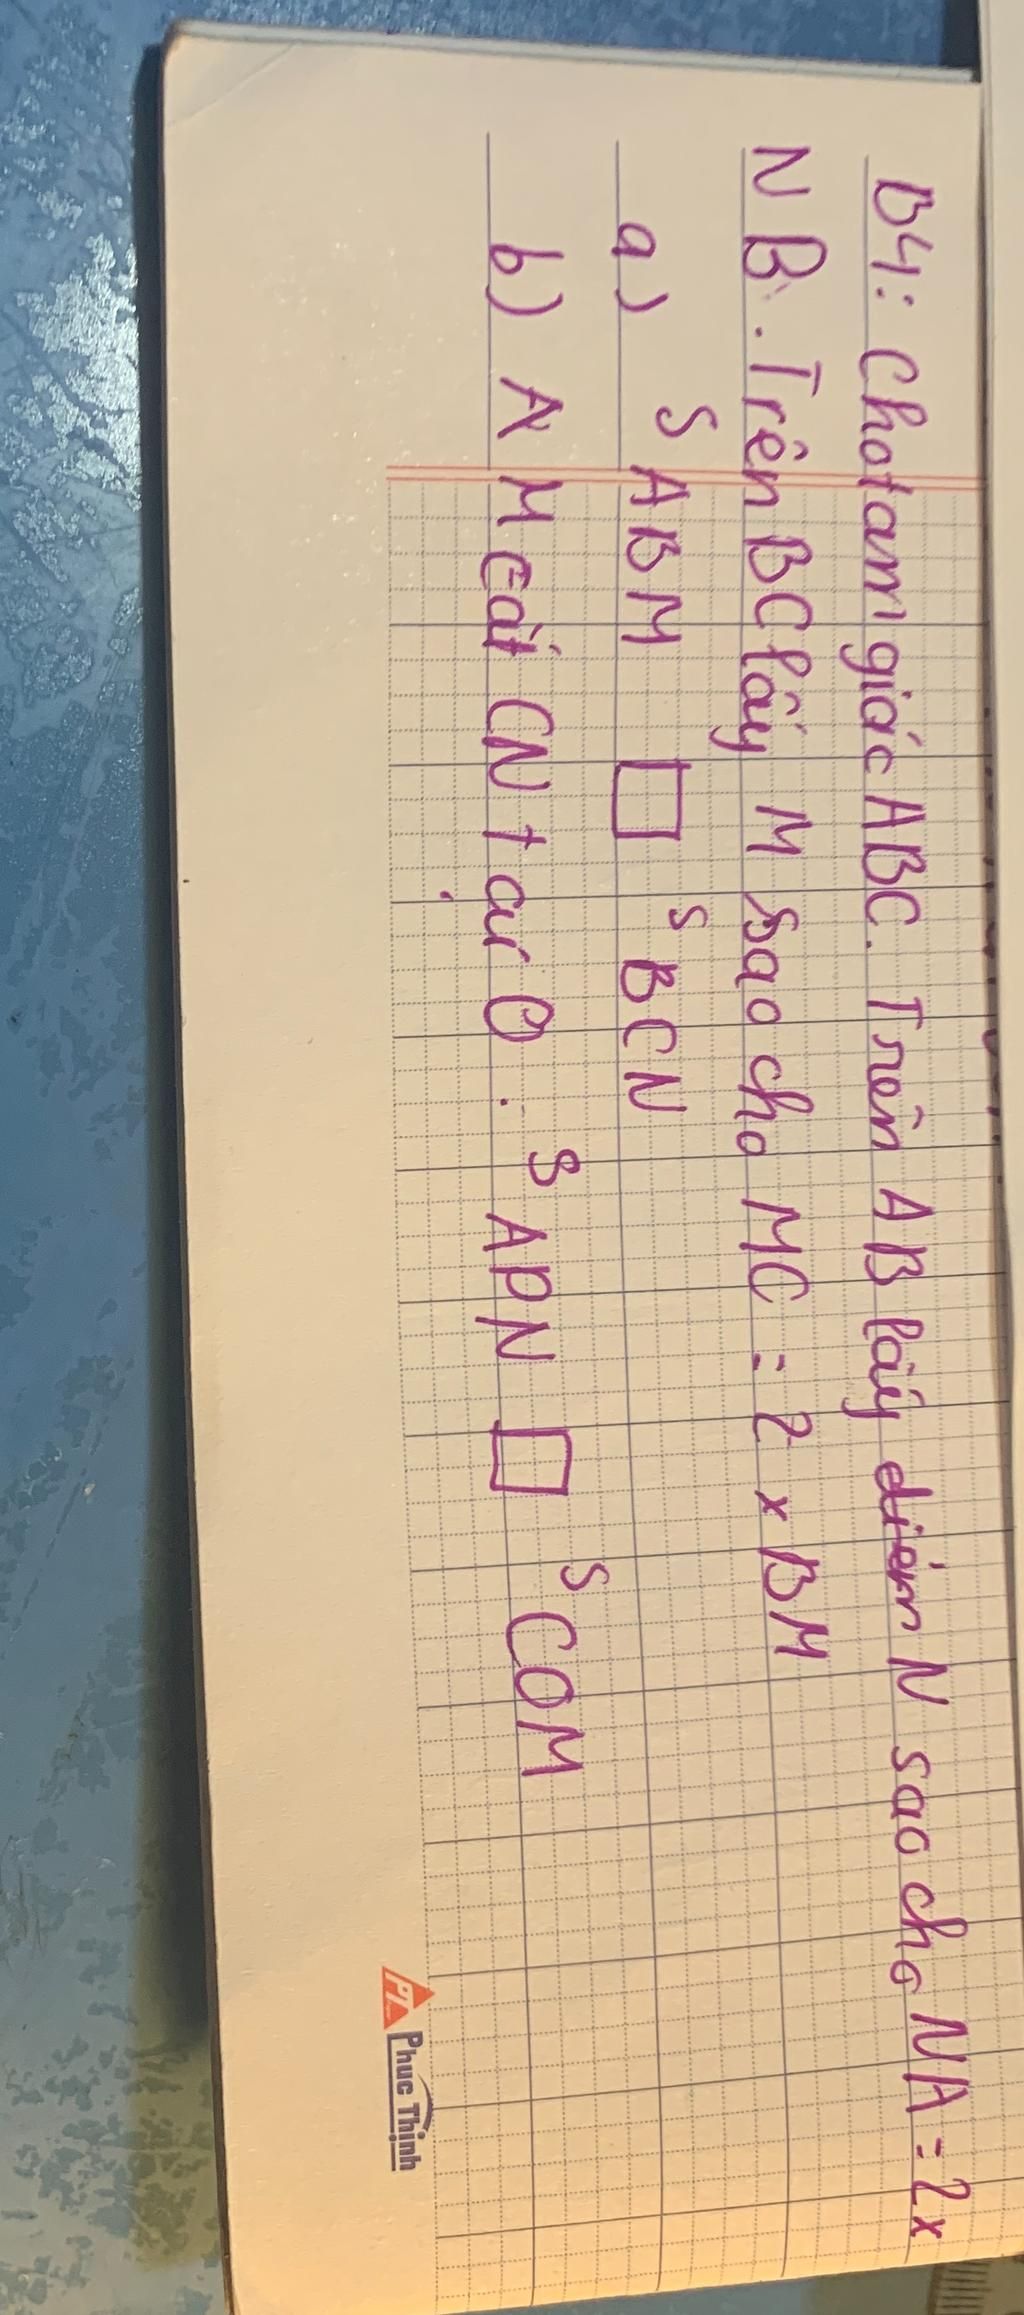 B4: Cho tam giác ABC. Trên AB lấy điểm N sao cho NA = 2x
NB. Trên BC lấy M sao cho MC = 2 x BM
a) S ABM □ S BCN
b) AM cắt CN tại O. S APN □ S COM
Phuc Thịnh